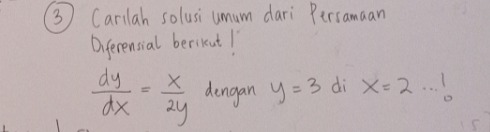 ③ Carilah solusi umum dari Persamaan
Diferensial berikut !
dy/dx = x/2y dengan y = 3 di x = 2 ...!